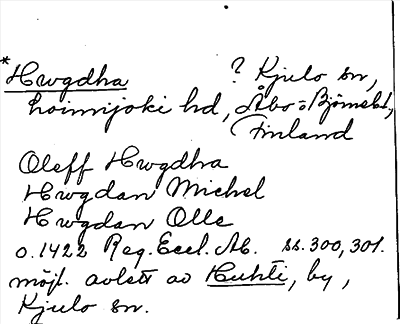 *Hwgdha ? Kjulo sn,
Loimijoki hd, Åbo=Björneb.,
Finland
Oleff Hwgdha
Hwgdan Michel
Hwgdan Olle
o.1422 Reg. Eccl. Ab. ss. 300, 301.
möjl. avlett av Huhti, by,
Kjulo sn.